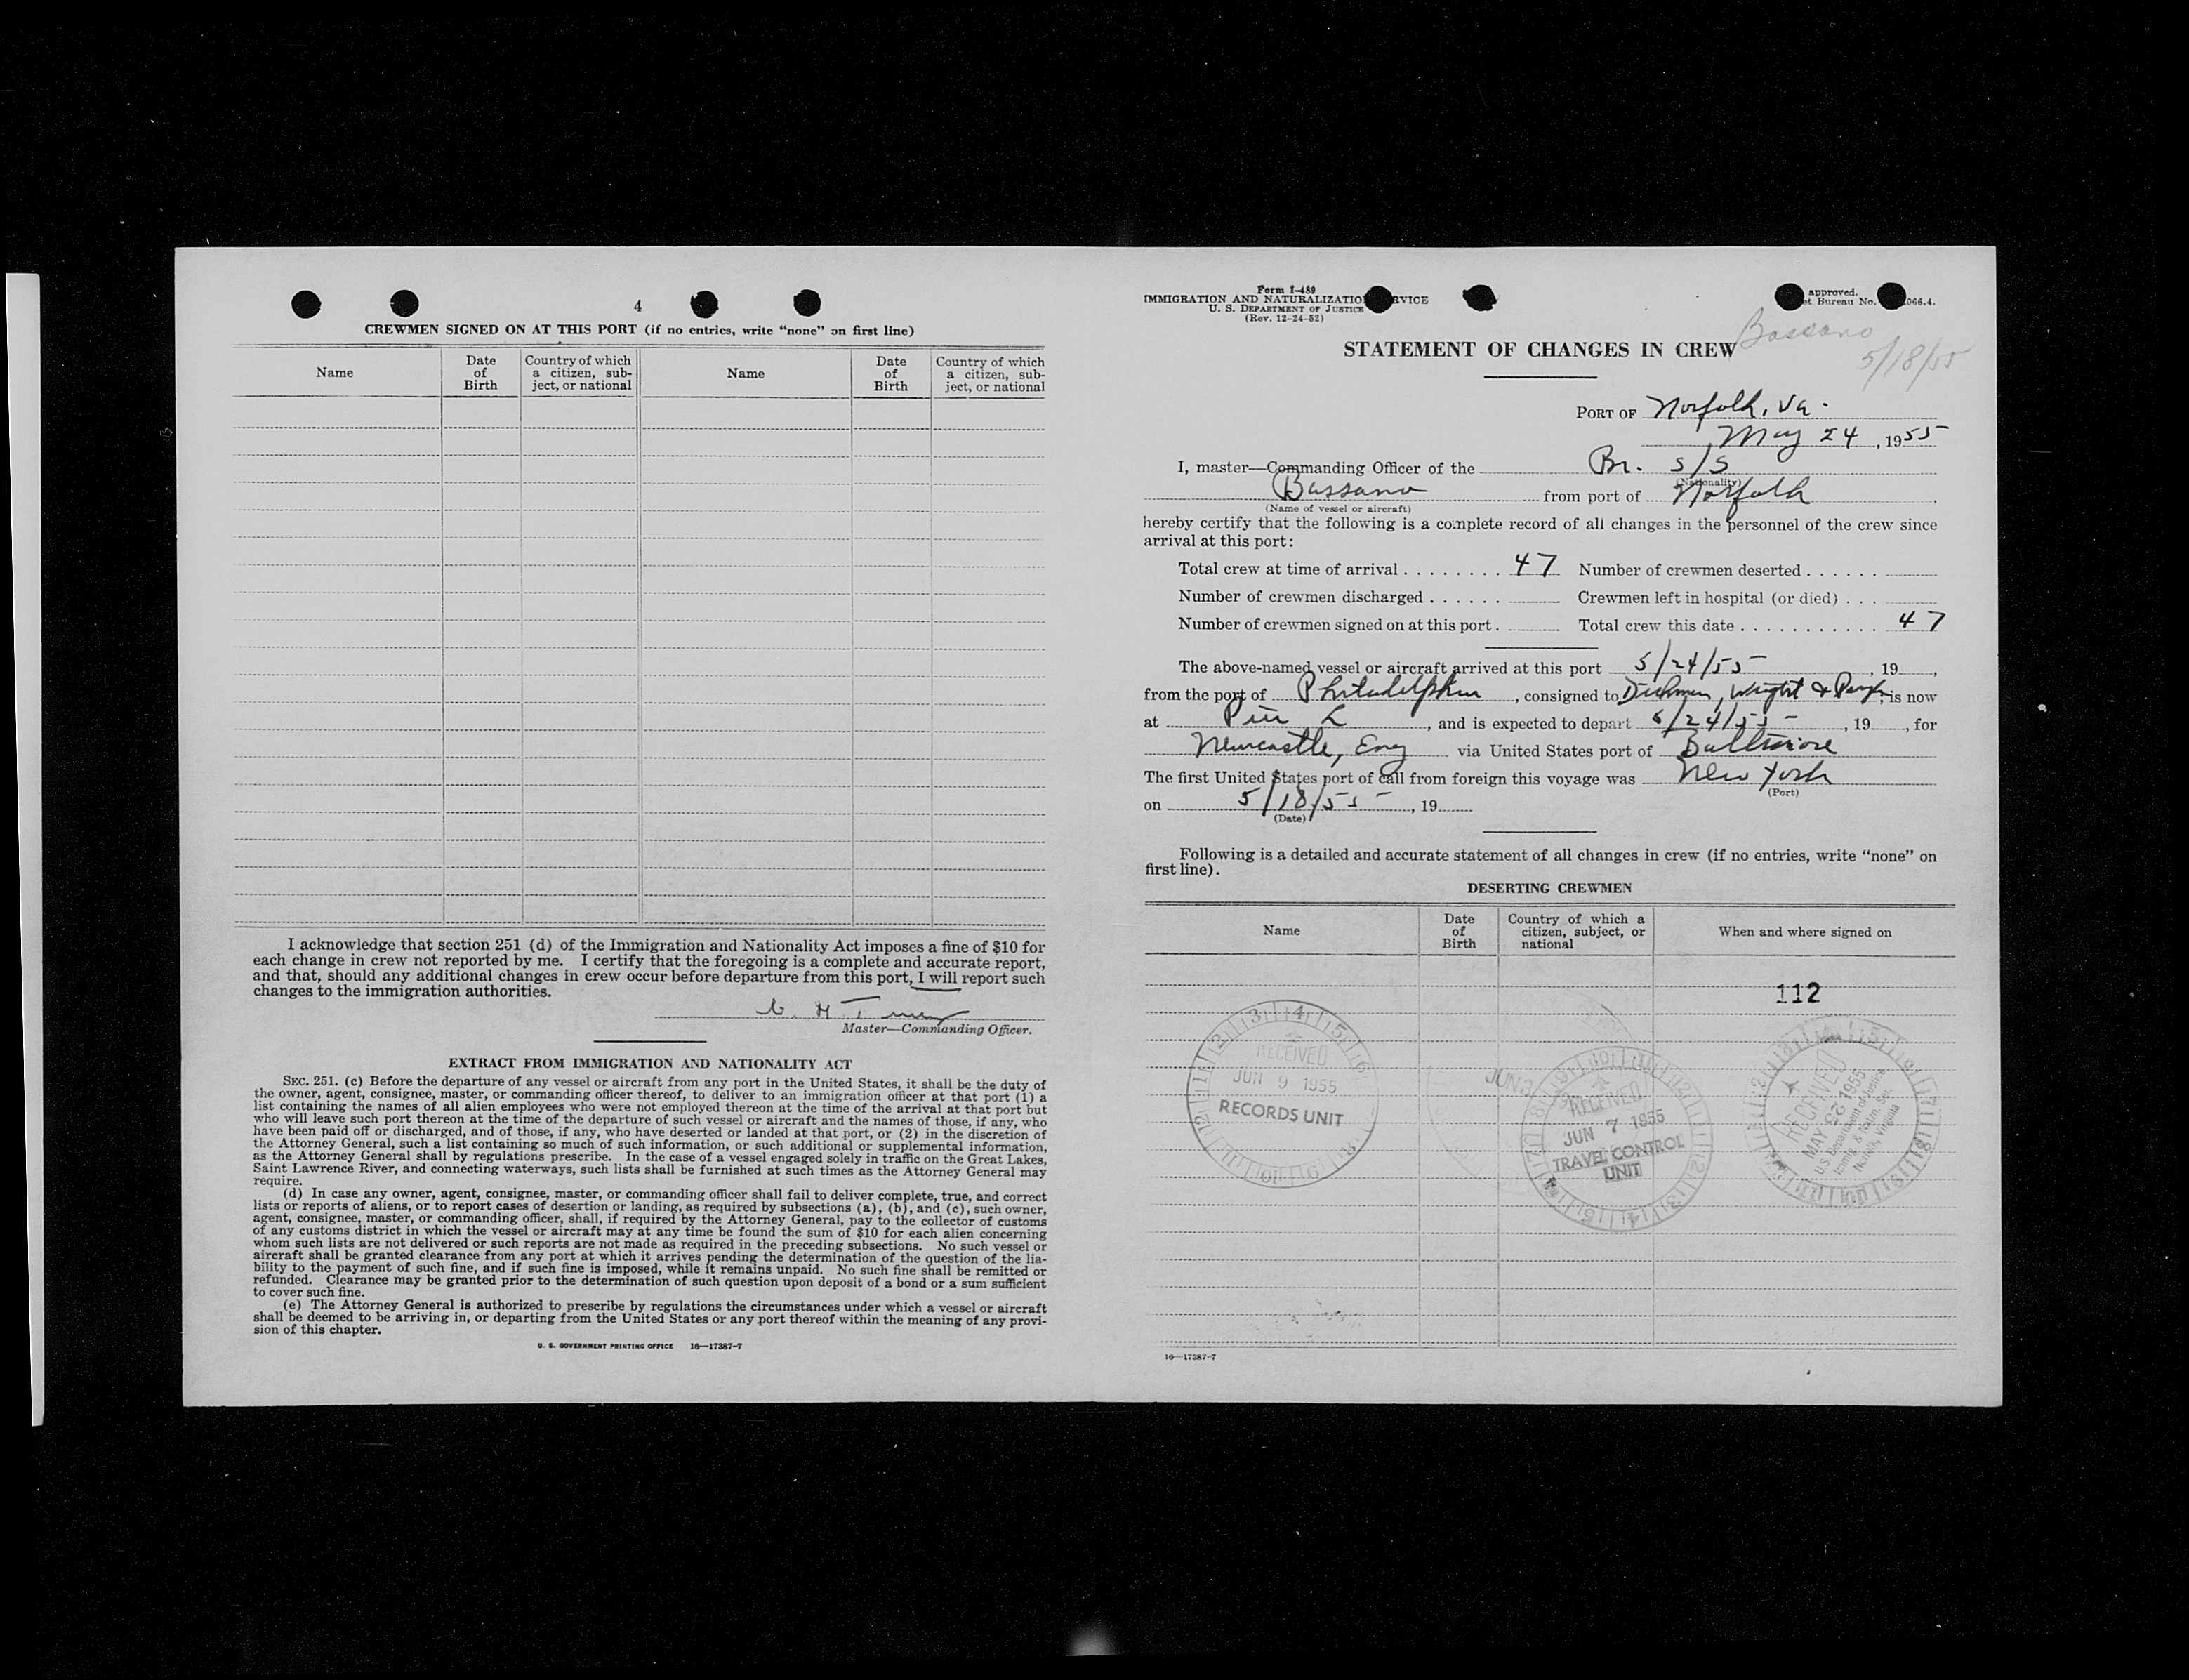 4
CREWMEN SIGNED ON AT THIS PORT (if no entries, write "none" on first line)
Name
Date of Birth
Country of which a citizen, subject, or national
Name
Date of Birth
Country of which a citizen, subject, or national
I acknowledge that section 251 (d) of the Immigration and Nationality Act imposes a fine of $10 for
each change in crew not reported by me. I certify that the foregoing is a complete and accurate report,
and that, should any additional changes in crew occur before departure from this port, I will report such
changes to the immigration authorities.
Master—Commanding Officer.
EXTRACT FROM IMMIGRATION AND NATIONALITY ACT
SEC. 251. (c) Before the departure of any vessel or aircraft from any port in the United States, it shall be the duty of
the owner, agent, consignee, master, or commanding officer thereof, to deliver to an immigration officer at that port (1) a
list containing the names of all alien employees who were not employed thereon at the time of the arrival at that port but
who will leave such port thereon at the time of the departure of such vessel or aircraft and the names of those, if any, who
have been paid off or discharged, and of those, if any, who have deserted or landed at that port, or (2) in the discretion of
the Attorney General, such a list containing so much of such information, or such additional or supplemental information,
as the Attorney General shall by regulations prescribe. In the case of a vessel engaged solely in traffic on the Great Lakes,
Saint Lawrence River, and connecting waterways, such lists shall be furnished at such times as the Attorney General may
require.
(d) In case any owner, agent, consignee, master, or commanding officer shall fail to deliver complete, true, and correct
lists or reports of aliens, or to report cases of desertion or landing, as required by subsections (a), (b), and (c), such owner,
agent, consignee, master, or commanding officer, shall, if required by the Attorney General, pay to the collector of customs
of any customs district in which the vessel or aircraft may at any time be found the sum of $10 for each alien concerning
whom such lists are not delivered or such reports are not made as required in the preceding subsections. No such vessel or
aircraft shall be granted clearance from any port at which it arrives pending the determination of the question of the lia-
bility to the payment of such fine, and if such fine is imposed, while it remains unpaid. No such fine shall be remitted or
refunded. Clearance may be granted prior to the determination of such question upon deposit of a bond or a sum sufficient
to cover such fine.
(e) The Attorney General is authorized to prescribe by regulations the circumstances under which a vessel or aircraft
shall be deemed to be arriving in, or departing from the United States or any port thereof within the meaning of any provi-
sion of this chapter.
U. S. GOVERNMENT PRINTING OFFICE 16—17387-7
Form I-489
IMMIGRATION AND NATURALIZATIO RVICE
U. S. DEPARTMENT OF JUSTICE
(Rev. 12-24-52)
approved.
et Bureau No. 066.4.
Bassano
5/18/55
STATEMENT OF CHANGES IN CREW
PORT OF Norfolk, Va.
May 24, 1955
I, master—Commanding Officer of the Br. S/S
(Nationality)
Bassano from port of Norfolk,
(Name of vessel or aircraft)
hereby certify that the following is a complete record of all changes in the personnel of the crew since
arrival at this port:
Total crew at time of arrival . . . . . . . . 47 Number of crewmen deserted . . . . . .
Number of crewmen discharged . . . . . . Crewmen left in hospital (or died) . . .
Number of crewmen signed on at this port . Total crew this date . . . . . . . . . . . 47
The above-named vessel or aircraft arrived at this port 5/24/55, 19 ,
from the port of Philadelphia, consigned to Wright & , is now
at Pier L, and is expected to depart 5/24/55, 19 , for
Newcastle, Eng via United States port of Baltimore
The first United States port of call from foreign this voyage was New York
(Port)
on 5/18/55, 19
(Date)
Following is a detailed and accurate statement of all changes in crew (if no entries, write "none" on
first line).
DESERTING CREWMEN
Name
Date of Birth
Country of which a citizen, subject, or national
When and where signed on
112
RECEIVED
JUN 9 1955
RECORDS UNIT
RECEIVED
JUN 7 1955
TRAVEL CONTROL
UNIT
RECEIVED
MAY 1955
U.S. Department of Justice
Norfolk, Virginia
16—17387-7